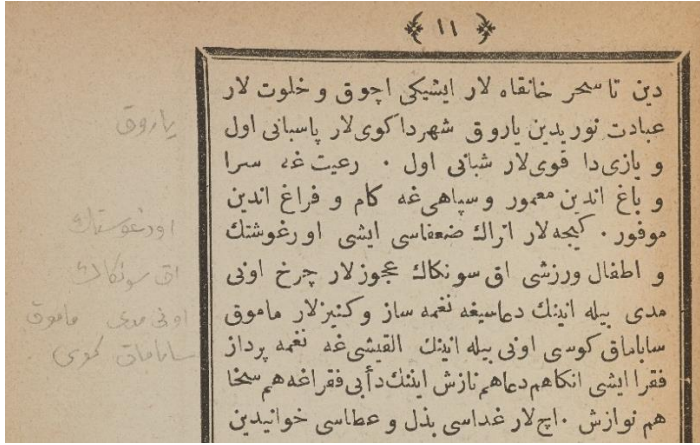 ١١
دین تا سحر خانقاه لار ایشیکی اچوق و خلوت لار
عبادت نوریدین یاروق شهردا کوی لار پاسبانی اول
و یازی دا قوی لار شبانی اول ۰ رعیت غه سرا
و باغ اندین معمور و سپاهی غه کام و فراغ اندین
موفور۰ کیجه لار اتراك ضعفاسی ایشی اورغوشتك
و اطفال ورزشی اق سونكاك عجوزلار چرخ اونی
مدی بیله اینینك دعاسیغه نغمه ساز و کنیزلار ماموق
ساباماق کوسی اونی بیله اینینك القیشی غه نغمه پرداز
فقرا ایشی انکا هم دعا هم نازش اینینك دأبی فقراغه هم سخا
هم نوازش ۰ اچ لار غداسی بذل و عطاسی خوانیدین
یاروق
اورغوشتك
اق سونكاك
اونی مدی ماموق
ساباماق كوسی